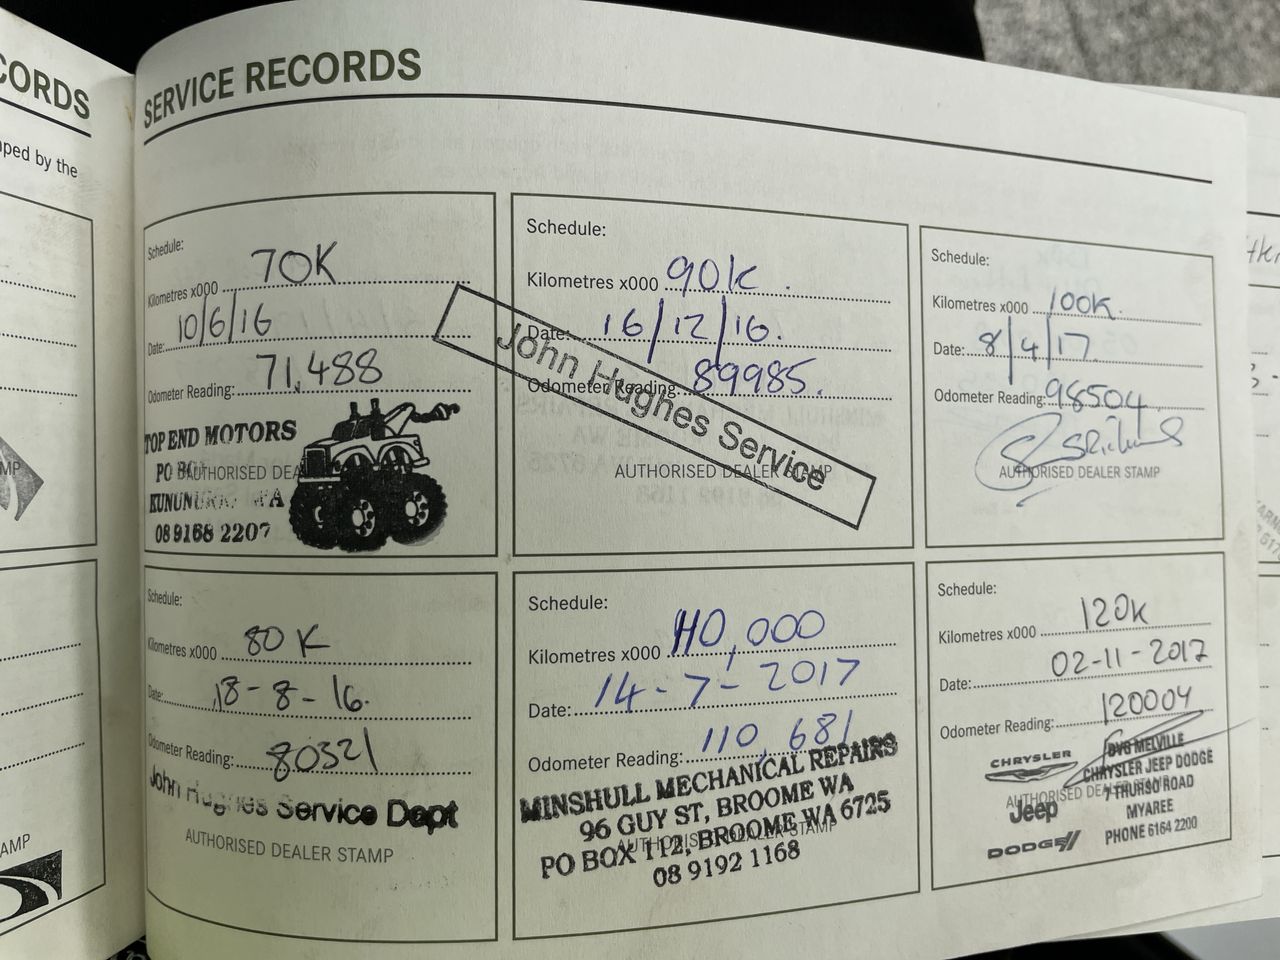 CORDS
ped by the
AMP
AMP
SERVICE RECORDS
Schedule:
Kilometres x000 70K
Date: 10/6/16
Odometer Reading: 71,488
TOP END MOTORS
PO BOX
AUTHORISED DEA
KUNUNURRA WA
08 9168 2207
Schedule:
Kilometres x000 90K.
Date: 16/12/16.
Odometer Reading: 89985.
John Hughes Service
AUTHORISED DEALER STAMP
Schedule:
Kilometres x000 100K.
Date: 8/4/17
Odometer Reading: 98504
AUTHORISED DEALER STAMP
Schedule:
Kilometres x000 80K
Date: 18-8-16.
Odometer Reading: 80321
John Hughes Service Dept
AUTHORISED DEALER STAMP
Schedule:
Kilometres x000 110,000
Date: 14-7-2017
Odometer Reading: 110,681
MINSHULL MECHANICAL REPAIRS
96 GUY ST, BROOME WA
PO BOX 112, BROOME WA 6725
AUTHORISED DEALER STAMP
08 9192 1168
Schedule:
Kilometres x000 120K
Date: 02-11-2017
Odometer Reading: 120004
CHRYSLER
Jeep
DODGE
AUTHORISED DEALER STAMP
DVG MELVILLE
CHRYSLER JEEP DODGE
7 THURSO ROAD
MYAREE
PHONE 6164 2200